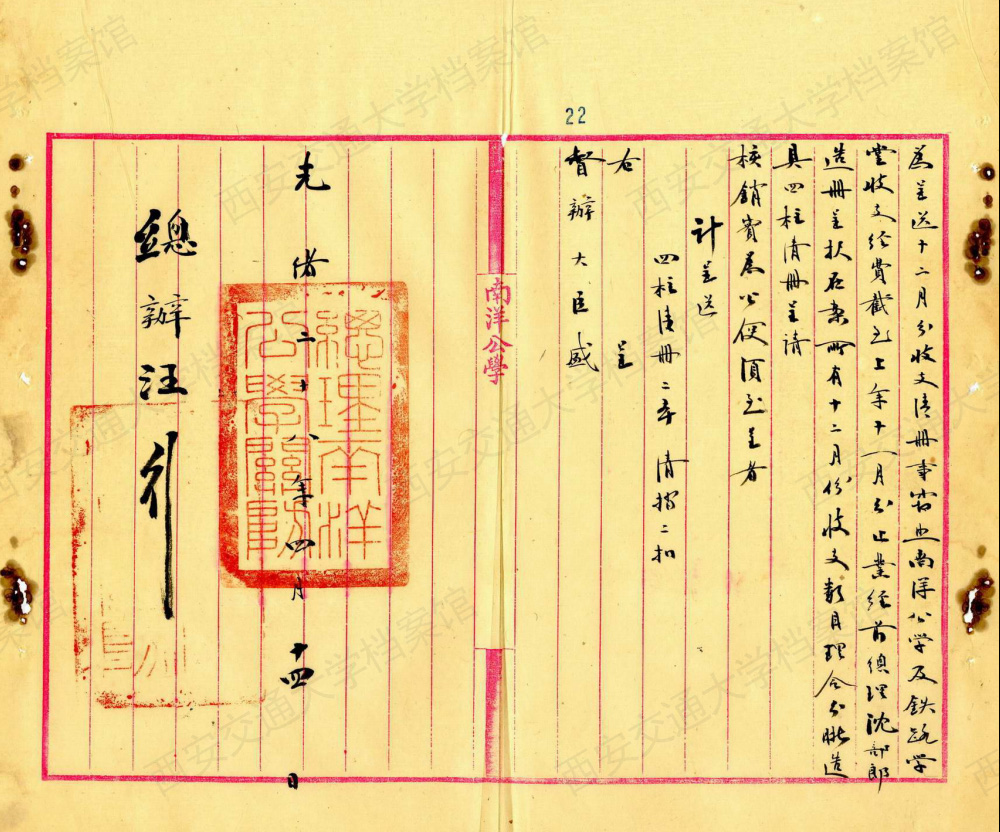 22
為呈送十二月分收支清冊事窃照南洋公學及鐵路學
堂收支經費截至上年十一月分止業經前總理沈部郎
造冊呈报在案所有十二月份收支數目理合分晰造
具四柱清冊呈請
核銷實為公便須至呈者
計呈送
四柱清冊二本 清摺二扣
右 呈
督辦大臣盛
南洋公學
光緒二十八年四月十四日
總理南洋
公學關防
總辦汪
西安交通大学档案馆